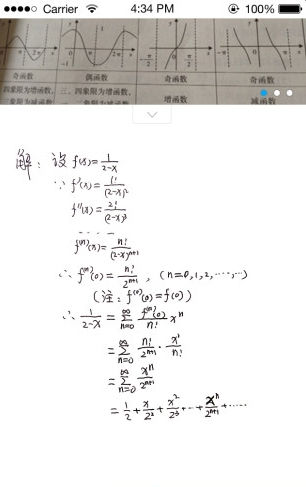 Carrier 4:34 PM 100%
奇函数 偶函数 奇函数 奇函数
四象限为增函数, 三、四象限为增函数, 增函数 减函数
解: 设 f(x)=1/(2-x)
∵ f'(x)=1!/(2-x)²
f''(x)=2!/(2-x)³
- - - -
f⁽ⁿ⁾(x)=n!/(2-x)ⁿ⁺¹
∴ f⁽ⁿ⁾(0)=n!/2ⁿ⁺¹, (n=0,1,2,……)
(注: f⁽⁰⁾(0)=f(0))
∴ 1/(2-x) = ∑_{n=0}^{∞} f⁽ⁿ⁾(0)/n! xⁿ
= ∑_{n=0}^{∞} n!/2ⁿ⁺¹ · xⁿ/n!
= ∑_{n=0}^{∞} xⁿ/2ⁿ⁺¹
= 1/2 + x/2² + x²/2³ + … + xⁿ/2ⁿ⁺¹ + ……